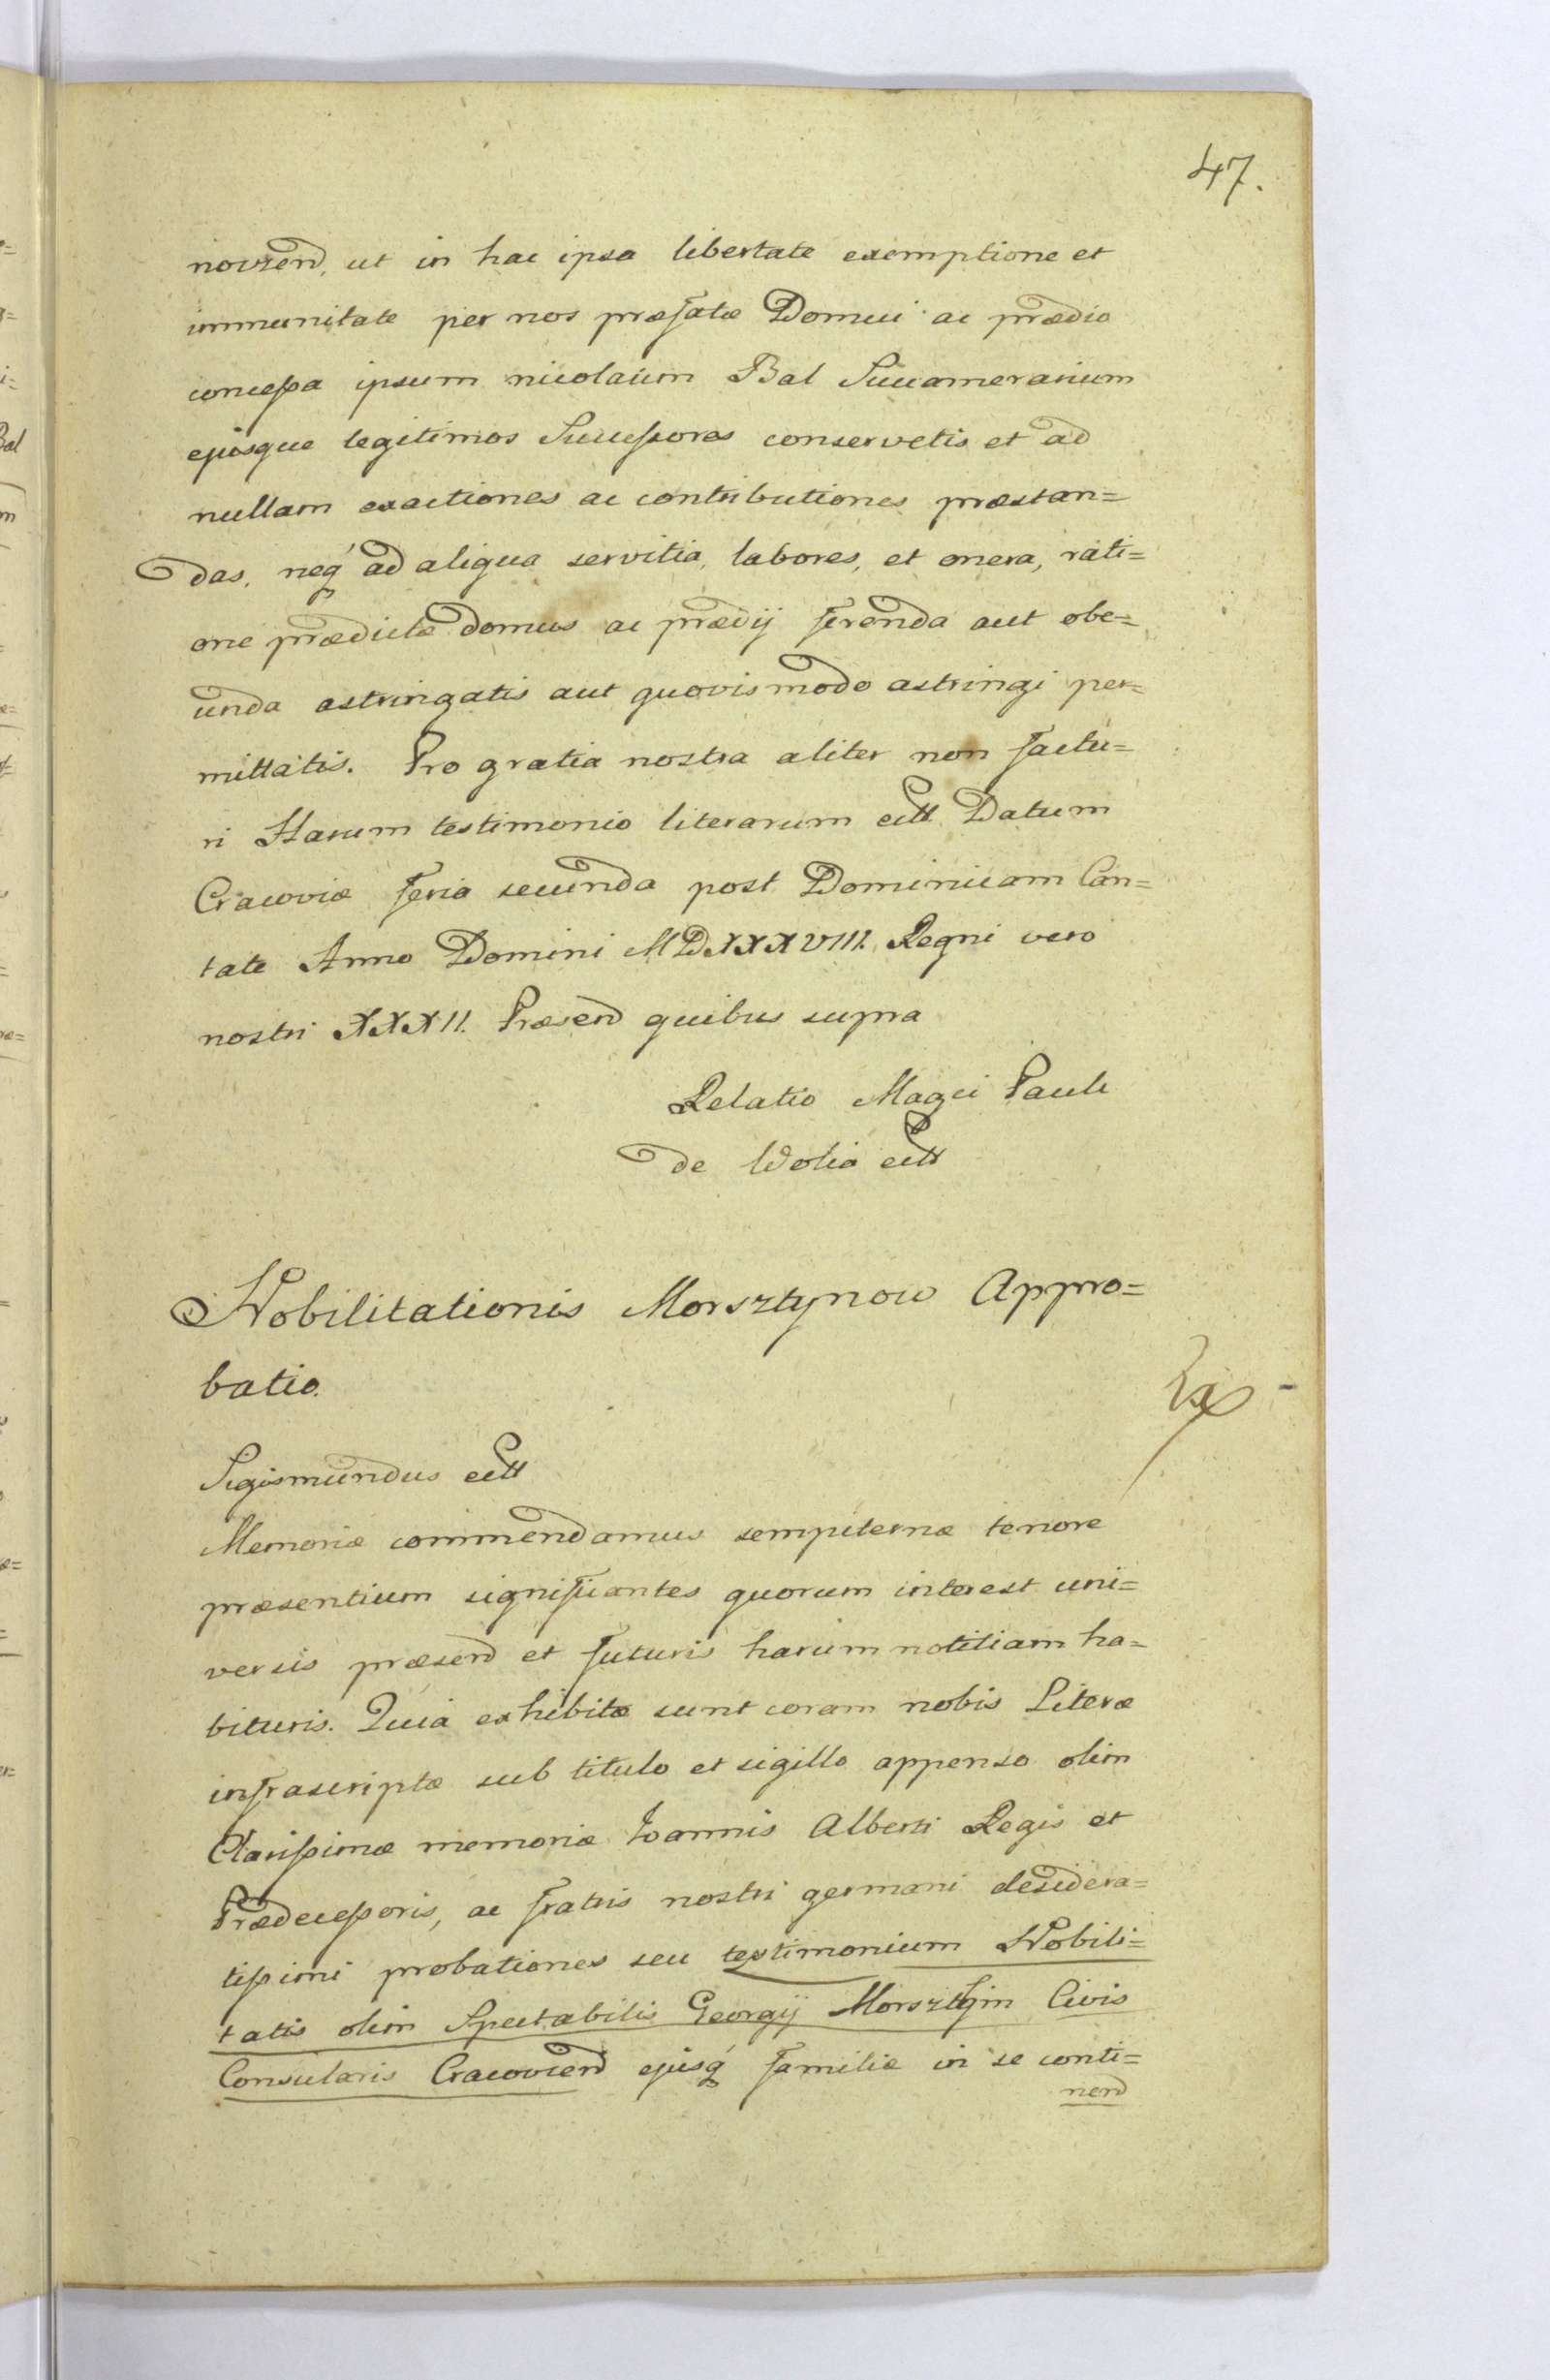 47.
ut in hac ipsa libertate exemptione et
immunitate per nos præfatæ Domui ac prædio
concessa ipsum nicolaum Bal Succamerarium
ejusque legitimos Successores conservetis et ad
nullam exactiones ac contributiones præstan=
das, neq ad aliqua servitia, labores, et onera, rati=
one prædictæ domus ac prædij ferenda aut obe=
unda astringatis aut quovismodo astringi per=
mittatis. Pro gratia nostra aliter non factu=
ri Harum testimonio literarum ett Datum
Cracoviæ feria secunda post Dominicam Can=
tate Anno Domini MDXXXVIII. Regni vero
nostri XXXII. Præsend quibus supra
Relatio Magci Pauli
de Wolia ett
Nobilitationis Morsztynow Appro=
batio.
Sigismundus ett
Memoriæ commendamus sempiternæ tenore
præsentium significantes quorum interest uni=
versis præsend et futuris harum notitiam ha=
bituris. Quia exhibitæ sunt coram nobis Literæ
infrascriptæ sub titulo et sigillo appenso olim
Clarissimæ memoriæ Joannis Alberti Regis et
Prædecessoris, ac fratris nostri germani desidera=
tissimi probationes seu testimonium Nobili=
tatis olim Spectabilis Georgij Morsztyn Civis
Consularis Cracoviend ejusq familiæ in se conti=
nend